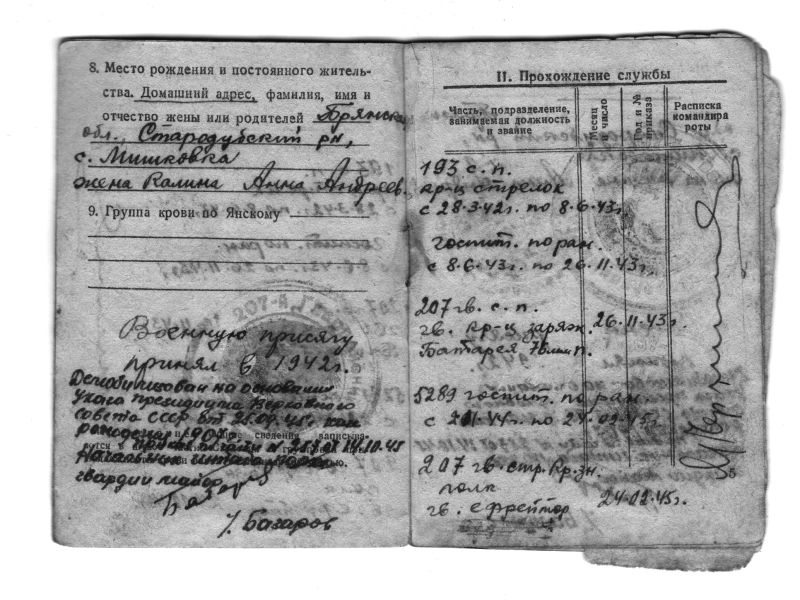 8. Место рождения и постоянного житель-
ства. Домашний адрес, фамилия, имя и
отчество жены или родителей Брянска
обл., Стародубский рн,
с. Мишковка
жена Калина Анна Андреев.
9. Группа крови по Янскому
Военную присягу
принял в 1942г.
Демобилизован на основании
Указа президиума Верховного
Совета СССР от 25.09.45г. как
гвардии майор
Базаров
/. Базаров
II. Прохождение службы
Часть, подразделение,
занимаемая должность
и звание
Месяц
и число
Год и №
приказа
Расписка
командира
роты
193 с. п.
кр-ц стрелок
с 28·3·42г. по 8·6·43г.
госпит. по ран.
с 8·6·43г. по 26·11·43г.
207 гв. с. п.
гв. кр-ц заряж. 26·11·43г.
Батарея 76мм п.
5289 госпит. по ран.
по 24·02·45г.
207 гв. стр. Кр. зн.
полк
гв. ефрейтор 24·02·45г.
5